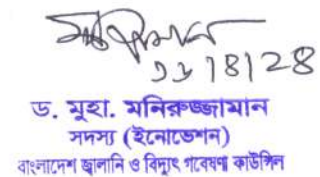 ১১।৪।২৪
ড. মুহা. মনিরুজ্জামান
সদস্য (ইনোভেশন)
বাংলাদেশ জ্বালানি ও বিদ্যুৎ গবেষণা কাউন্সিল